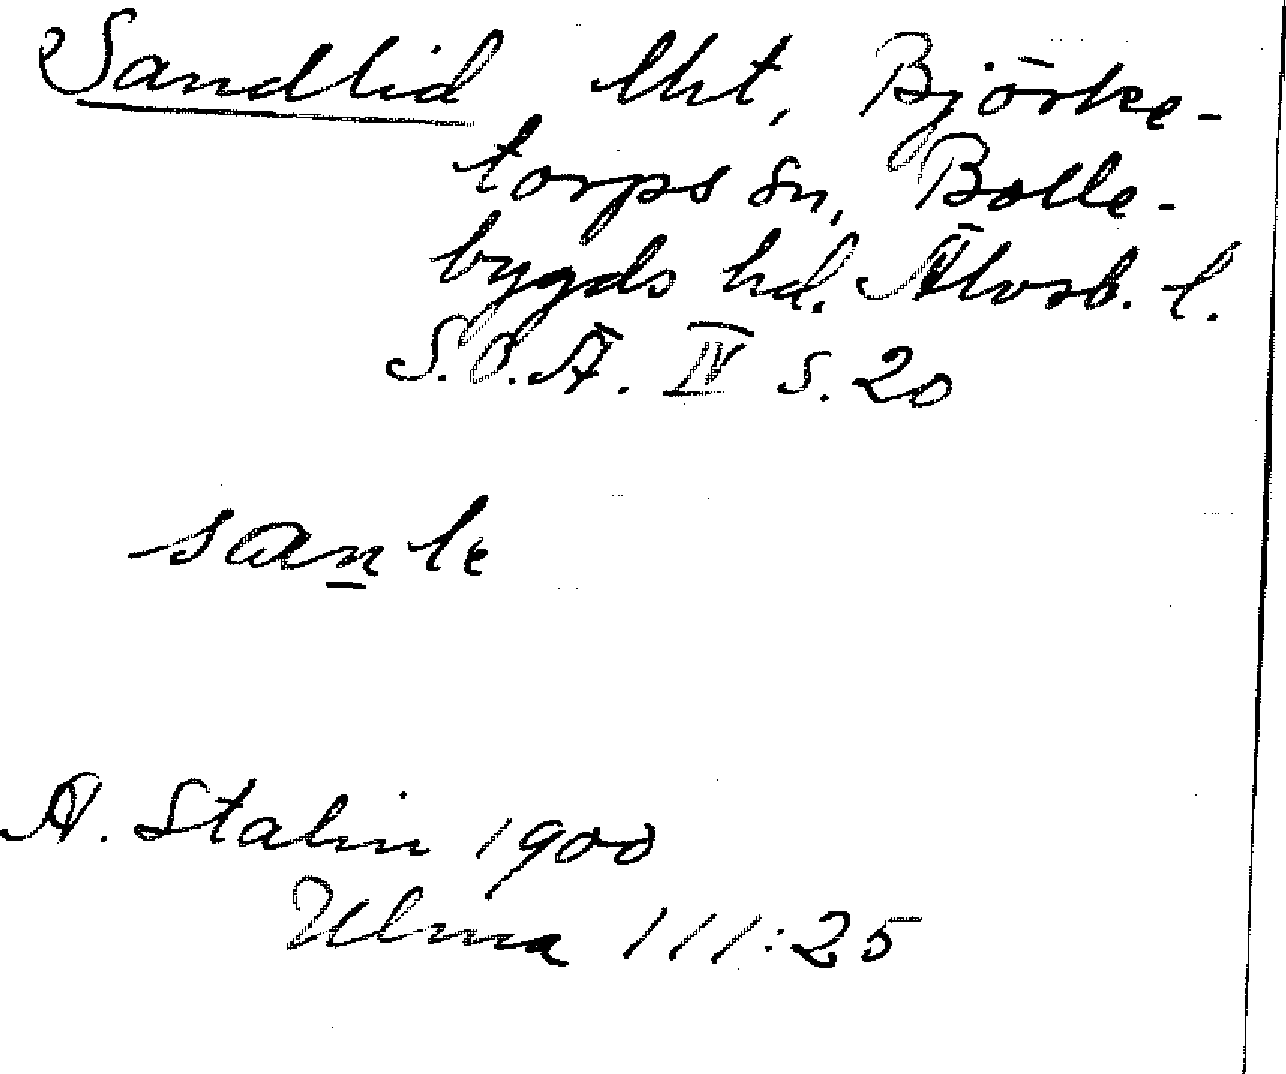 Sandlid lht, Björke-
torps sn, Bolle-
bygds hd. Älvsb. l.
S.O.Ä. IV s. 20
sanle
A. Stalin 1900
Ulma 111:25